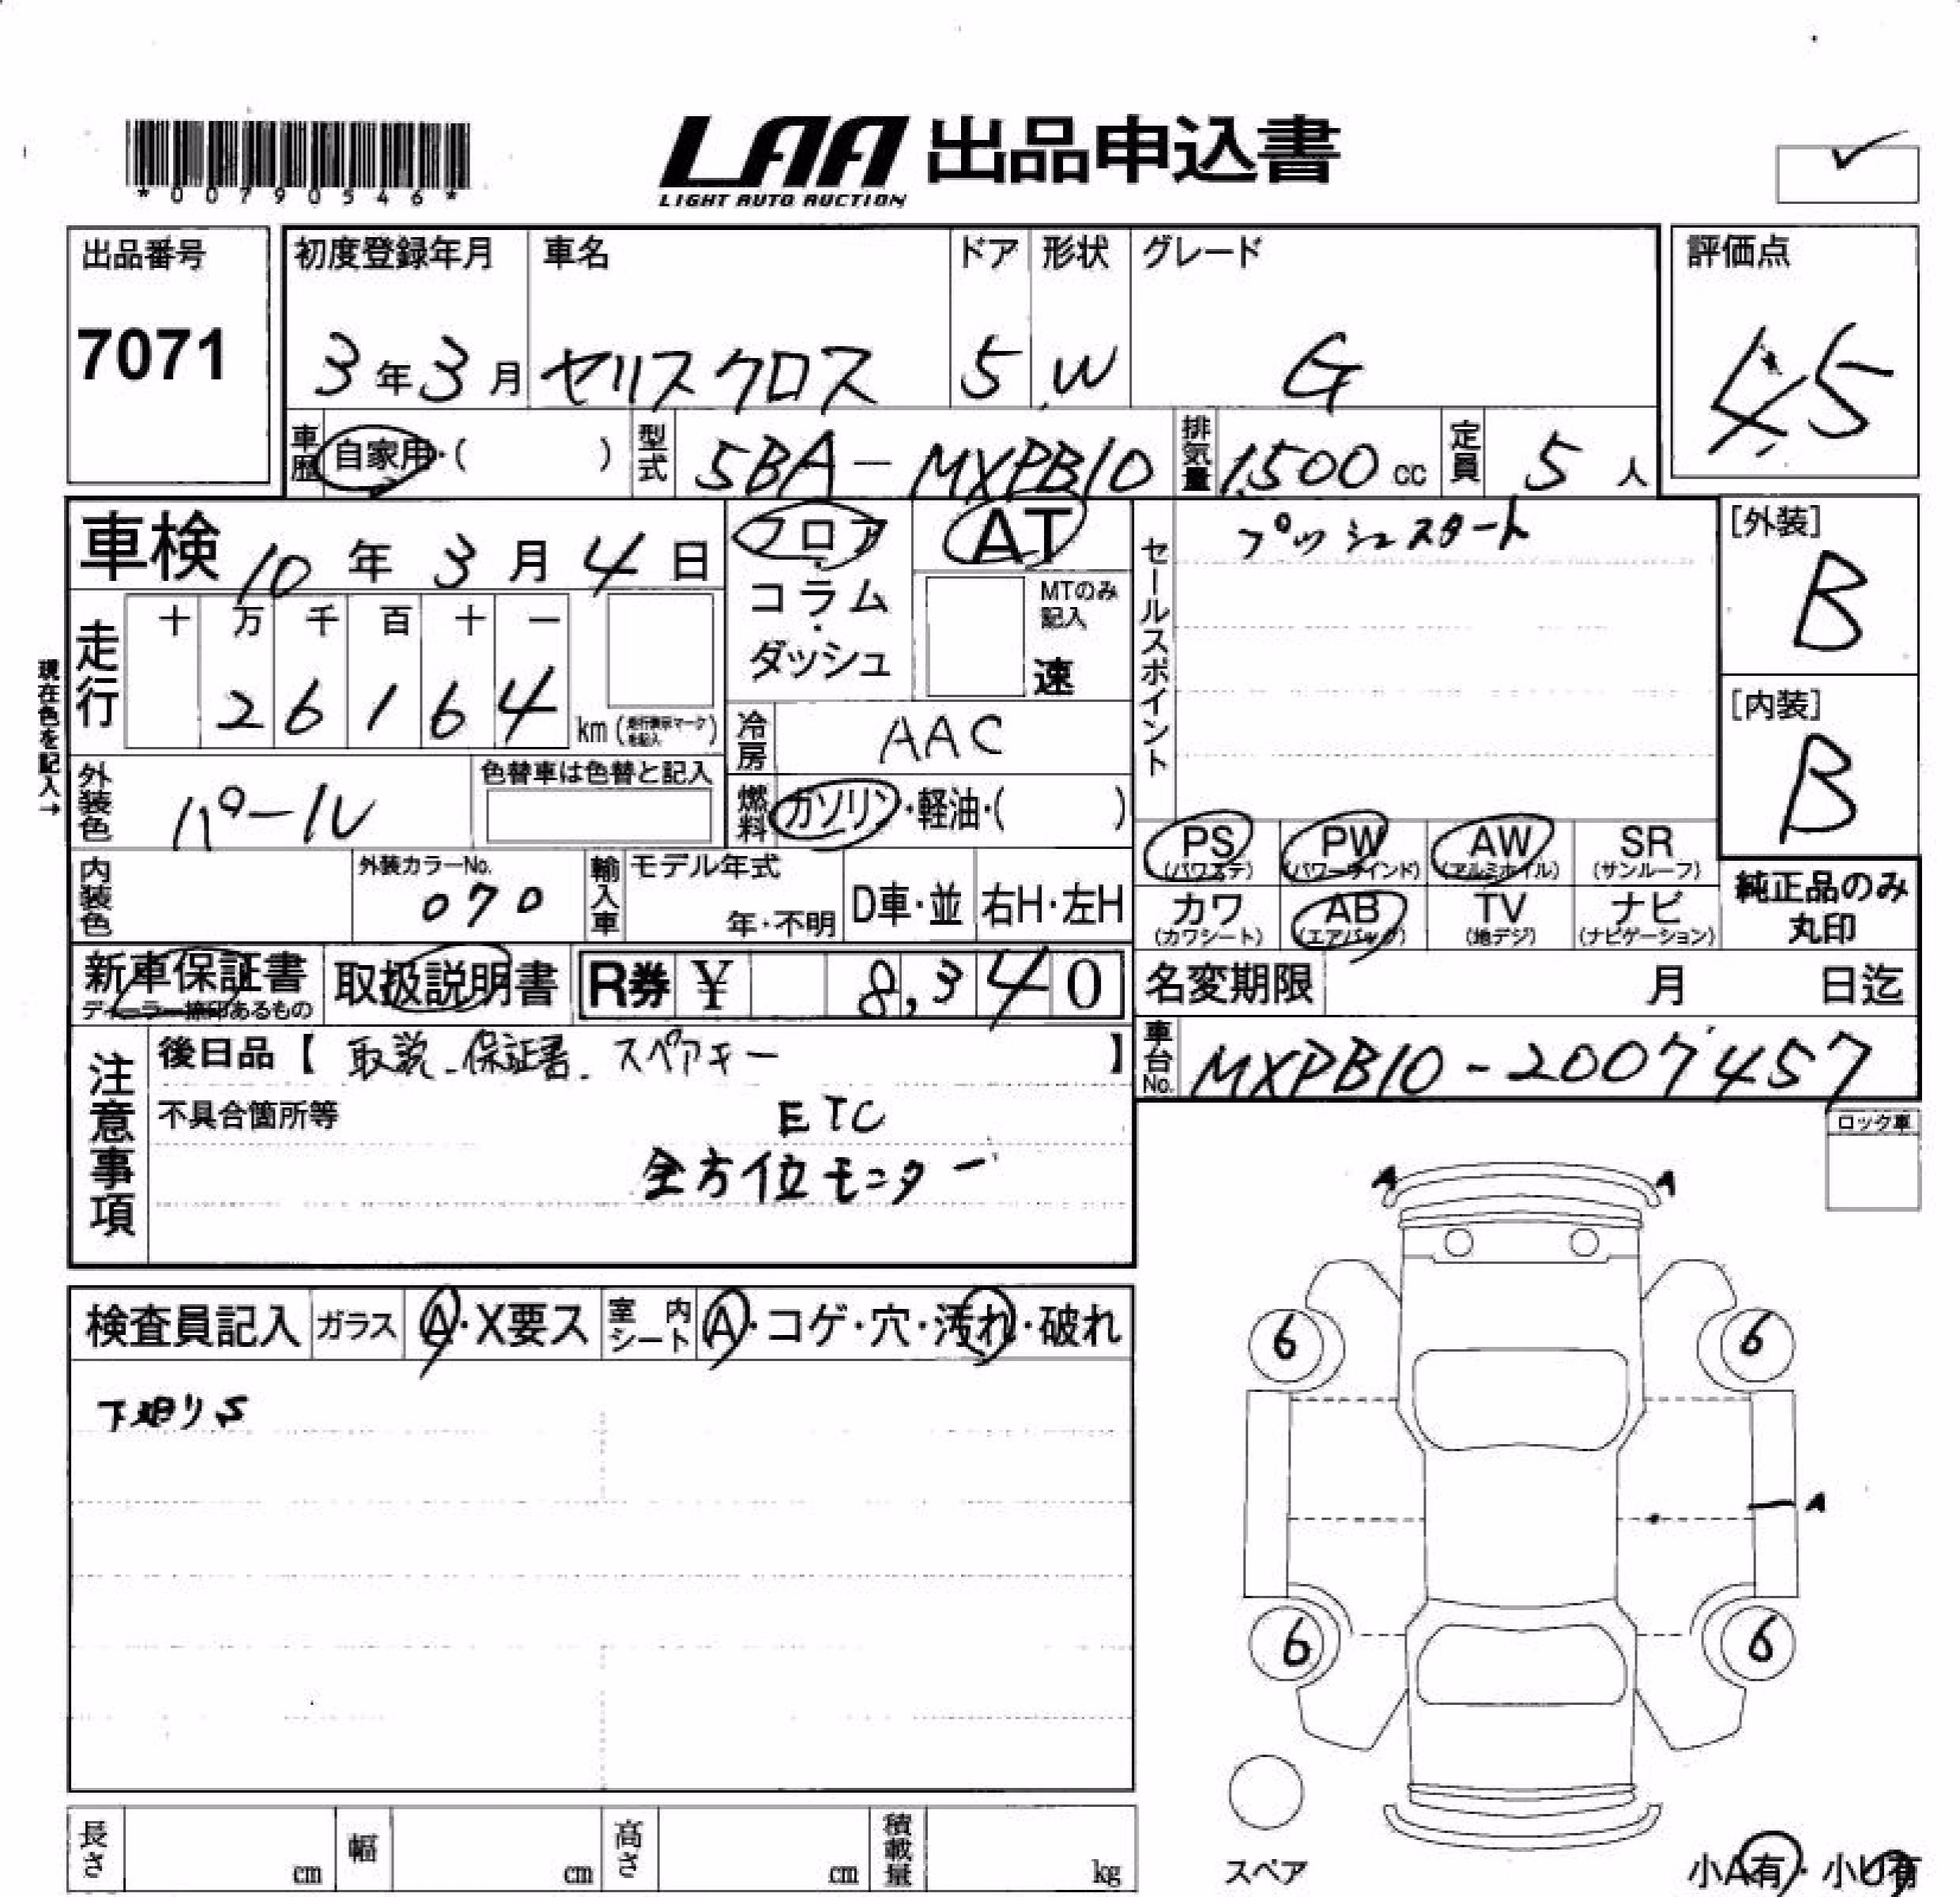 *00790546*
LAA 出品申込書
LIGHT AUTO AUCTION
出品番号 初度登録年月 車名 ドア 形状 グレード 評価点
7071 3年3月 ヤリスクロス 5 W G 4.5
車歴 自家用・( ) 型式 5BA-MXPB10 排気量 1500cc 定員 5人
車検 10年3月4日 フロア・コラム・ダッシュ AT MTのみ記入 速
セールスポイント プッシュスタート
[外装] B
走行 十万千百十一
26164 km (走行表示マークを記入)
[内装] B
現在色を記入→
冷房 AAC
外装色 パール 色替車は色替と記入
燃料 ガソリン・軽油・( )
PS(パワステ) PW(パワーウインド) AW(アルミホイル) SR(サンルーフ)
内装色 外装カラーNo. 070 輸入車 モデル年式 年・不明 D車・並 右H・左H
カワ(カワシート) AB(エアバッグ) TV(地デジ) ナビ(ナビゲーション)
純正品のみ丸印
新車保証書 ディーラー捺印あるもの 取扱説明書 R券 ¥ 8,340
名変期限 月 日迄
注意事項 後日品【 取説-保証書. スペアキー 】
車台No. MXPB10-2007457
不具合箇所等 ETC
全方位モニター
ロック車
A A
検査員記入 ガラス A・X要ス 室内シート A・コゲ・穴・汚れ・破れ
6 6
A
6 6
長さ cm 幅 cm 高さ cm 積載量 kg
スペア
小A有・小U有